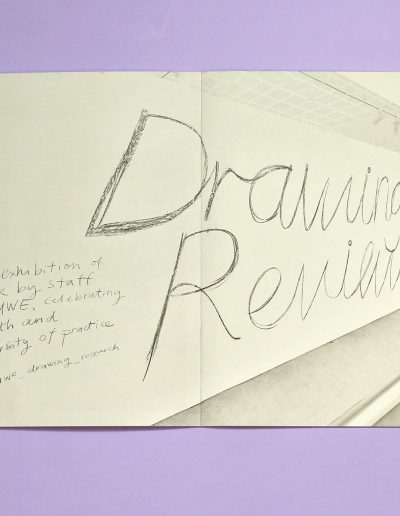 Drawing
Review
exhibition of
by staff
UWE, celebrating
and
of practice
uwe_drawing_research